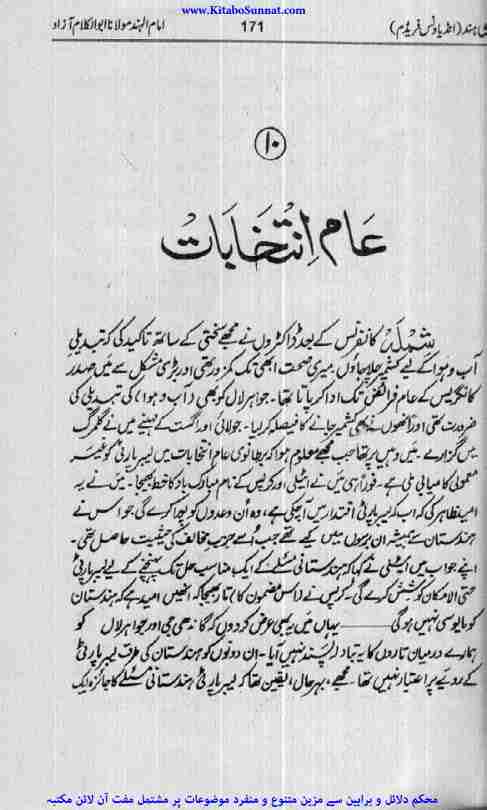 www.KitaboSunnat.com
ہند (انڈیا ونس فریڈم)
171
امام الہند مولانا ابوالکلام آزاد
۱۰
عام انتخابات
شملہ کانفرنس کے بعد ڈاکٹروں نے مجھے سختی کے ساتھ تاکید کی کہ تبدیلیِ
آب و ہوا کے لیے کشمیر چلا جاؤں۔ میری صحت ابھی تک کمزور تھی اور بڑی مشکل سے میں صدر
کانگریس کے عام فرائض تک ادا کر پاتا تھا۔ جواہر لال کو بھی (آب و ہوا) کی تبدیلی کی
ضرورت تھی اور انھوں نے بھی کشمیر جانے کا فیصلہ کر لیا۔ جولائی اور اگست کے مہینے میں نے گلمرگ
میں گزارے۔ میں وہیں پر تھا جب مجھے معلوم ہوا کہ برطانوی عام انتخابات میں لیبر پارٹی کو غیر
معمولی کامیابی ملی ہے۔ فوراً ہی میں نے ایٹلی اور کرپس کے نام مبارک باد کا خط بھیجا۔ میں نے یہ
امید ظاہر کی کہ اب کہ لیبر پارٹی اقتدار میں آ چکی ہے، وہ ان وعدوں کو پورا کرے گی جو اس نے
ہندستان سے ہمیشہ ان برسوں میں کیے تھے جب اُسے حزبِ مخالف کی حیثیت حاصل تھی۔
اپنے جواب میں ایٹلی نے کہا کہ ہندستانی مسئلے کے ایک مناسب حل تک پہنچنے کے لیے لیبر پارٹی
حتی الامکان کوشش کرے گی۔ کرپس نے (اس مضمون کا) تار بھیجا کہ انھیں امید ہے کہ ہندستان
کو مایوسی نہیں ہو گی ——— یہاں میں یہ بھی عرض کر دوں کہ گاندھی جی اور جواہر لال کو
ہمارے درمیان تاروں کا یہ تبادلہ پسند نہیں آیا۔ ان دونوں کو ہندستان کی طرف لیبر پارٹی
کے رویے پر اعتبار نہیں تھا۔ مجھے، بہرحال، یقین تھا کہ لیبر پارٹی ہندستانی مسئلے کا جائزہ ایک
محکم دلائل و براہین سے مزین متنوع و منفرد موضوعات پر مشتمل مفت آن لائن مکتبہ